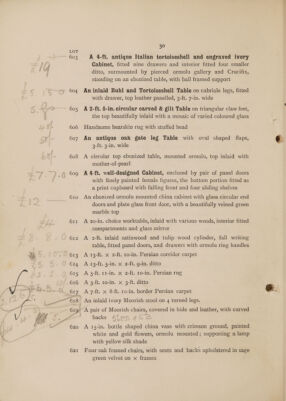 30
LOT
603 A 4-ft. antique Italian tortoiseshell and engraved ivory
Cabinet, fitted nine drawers and interior fitted four smaller
ditto, surmounted by pierced ormolu gallery and Crucifix,
standing on an ebonized table, with ball framed support
£19
604 An inlaid Buhl and Tortoiseshell Table on cabriole legs, fitted
with drawer, top leather panelled, 3-ft. 7-in. wide
605 A 2-ft. 6-in. circular carved & gilt Table on triangular claw feet,
the top beautifully inlaid with a mosaic of varied coloured glass
606 Handsome bearskin rug with stuffed head
607 An antique oak gate leg Table with oval shaped flaps,
3-ft. 3-in. wide
608 A circular top ebonized table, mounted ormolu, top inlaid with
mother-of-pearl
£7.7.0 609 A 4-ft. well-designed Cabinet, enclosed by pair of panel doors
with finely painted female figures, the bottom portion fitted as
a print cupboard with falling front and four sliding shelves
£12 610 An ebonized ormolu mounted china cabinet with glass circular end
doors and plate glass front door, with a beautifully veined green
marble top
611 A 20-in. choice worktable, inlaid with various woods, interior fitted
compartments and glass mirror
8.8.0 612 A 2-ft. inlaid satinwood and tulip wood cylinder, fall writing
table, fitted panel doors, and drawers with ormolu ring handles
613 A 13-ft. × 2-ft. 10-in. Persian corridor carpet
614 A 13-ft. 3-in. × 2-ft. 9-in. ditto
615 A 3-ft. 11-in. × 2-ft. 10-in. Persian rug
616 A 3-ft. 10-in. × 3-ft. ditto
617 A 7-ft. × 8-ft. 10-in. border Persian carpet
618 An inlaid ivory Moorish stool on 4 turned legs.
619 A pair of Moorish chairs, covered in hide and leather, with carved
backs
620 A 15-in. bottle shaped china vase with crimson ground, painted
white and gold flowers, ormolu mounted; supporting a lamp
with yellow silk shade
621 Four oak framed chairs, with seats and backs upholstered in sage
green velvet on × frames